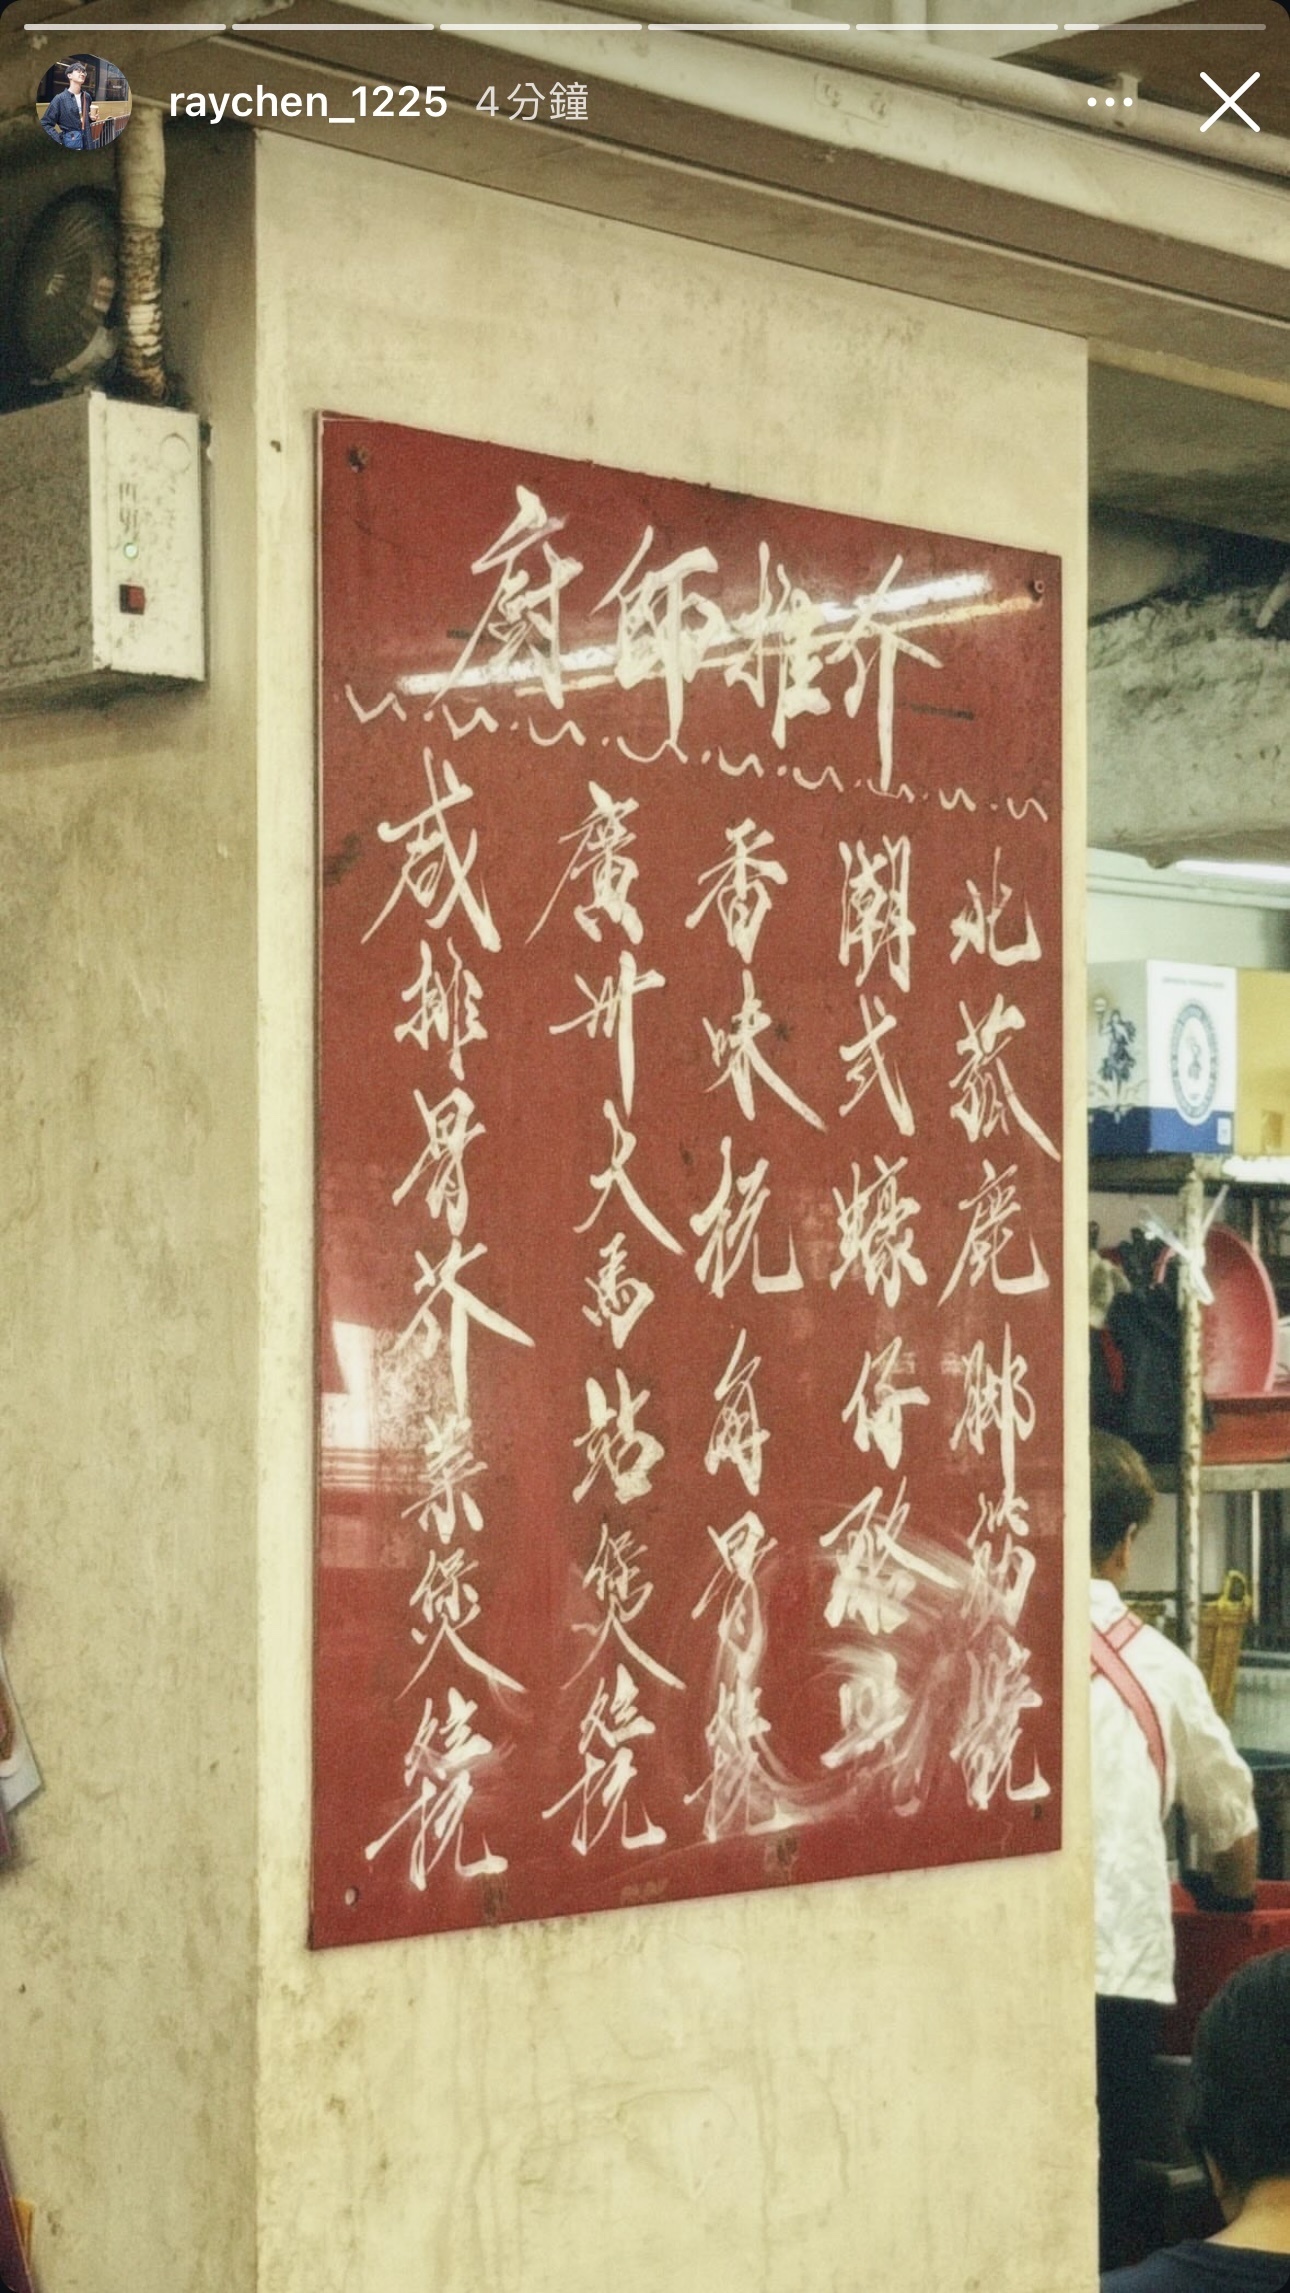 raychen_1225 4分鐘
廚師推介
北菰鹿腳筋
潮式蠔仔
香味 角骨
廣州大馬站煲
咸排骨芥菜煲